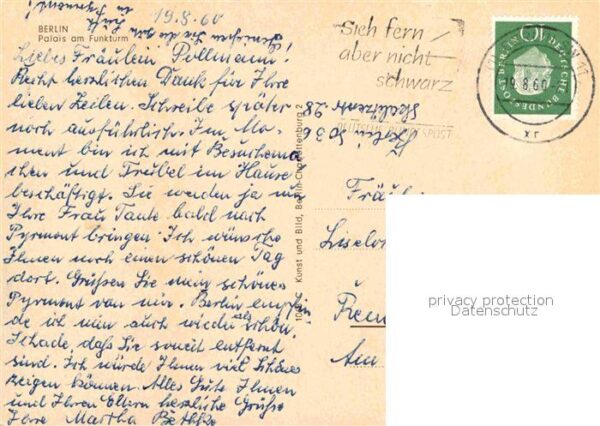 BERLIN
Palais am Funkturm
19.8.60
Liebes Fräulein Pollmann!
Recht herzlichen Dank für Ihre
lieben Zeilen. Schreibe später
noch ausführlicher. Im Mo-
ment bin ich mit Besuchema
chen und Treibel im Hause
beschäftigt. Sie werden ja nun
Ihre Frau Tante bald nach
Pyrmont bringen. Ich wünsche
Ihnen noch einen schönen Tag
dort. Grüßen Sie mein schönes
Pyrmont von mir. Berlin empfin
de ich nun auch wieder als schön.
Schade, daß Sie soweit entfernt
sind. Ich würde Ihnen viel Schönes
zeigen können. Alles Gute Ihnen
und Ihren Eltern herzliche Grüße
Ihre Martha Bethke
Kunst und Bild, Berlin-Charlottenburg 2
Sieh fern
aber nicht
schwarz
DEUTSCHE BUNDESPOST
Berlin
DEUTSCHE BUNDESPOST BERLIN
10
19.8.60
xr
Fräu
Liselo
Am
privacy protection
Datenschutz